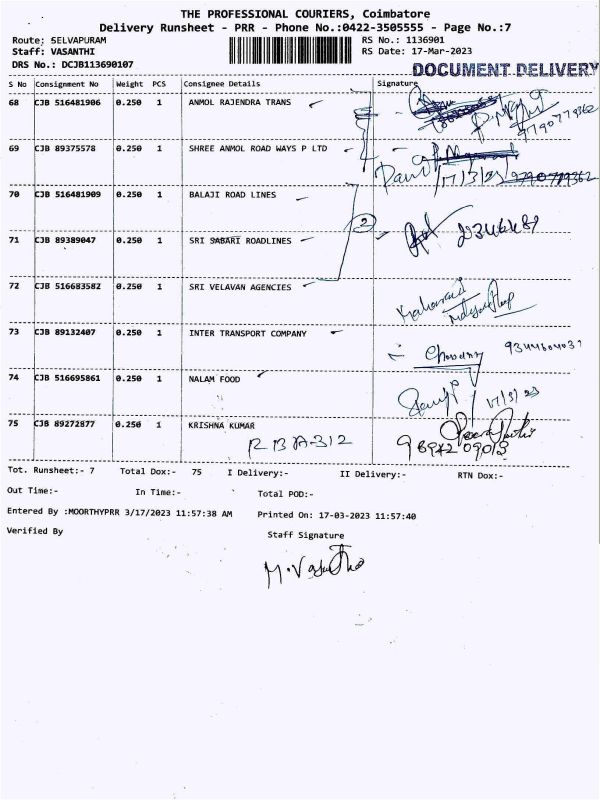 THE PROFESSIONAL COURIERS, Coimbatore
Delivery Runsheet - PRR - Phone No.:0422-3505555 - Page No.:7
Route: SELVAPURAM
RS No.: 1136901
Staff: VASANTHI
RS Date: 17-Mar-2023
DRS No.: DCJB113690107
DOCUMENT DELIVERY
S No Consignment No Weight PCS Consignee Details Signature
68 CJB 516481906 0.250 1 ANMOL RAJENDRA TRANS
9790779362
69 CJB 89375578 0.250 1 SHREE ANMOL ROAD WAYS P LTD
17/3/23 9790779362
70 CJB 516481909 0.250 1 BALAJI ROAD LINES
2
71 CJB 89389047 0.250 1 SRI SABARI ROADLINES
72 CJB 516683582 0.250 1 SRI VELAVAN AGENCIES
73 CJB 89132407 0.250 1 INTER TRANSPORT COMPANY
74 CJB 516695861 0.250 1 NALAM FOOD
17/3/23
75 CJB 89272877 0.250 1 KRISHNA KUMAR
Tot. Runsheet:- 7 Total Dox:- 75 I Delivery:- II Delivery:- RTN Dox:-
Out Time:- In Time:- Total POD:-
Entered By :MOORTHYPRR 3/17/2023 11:57:38 AM Printed On: 17-03-2023 11:57:40
Verified By Staff Signature